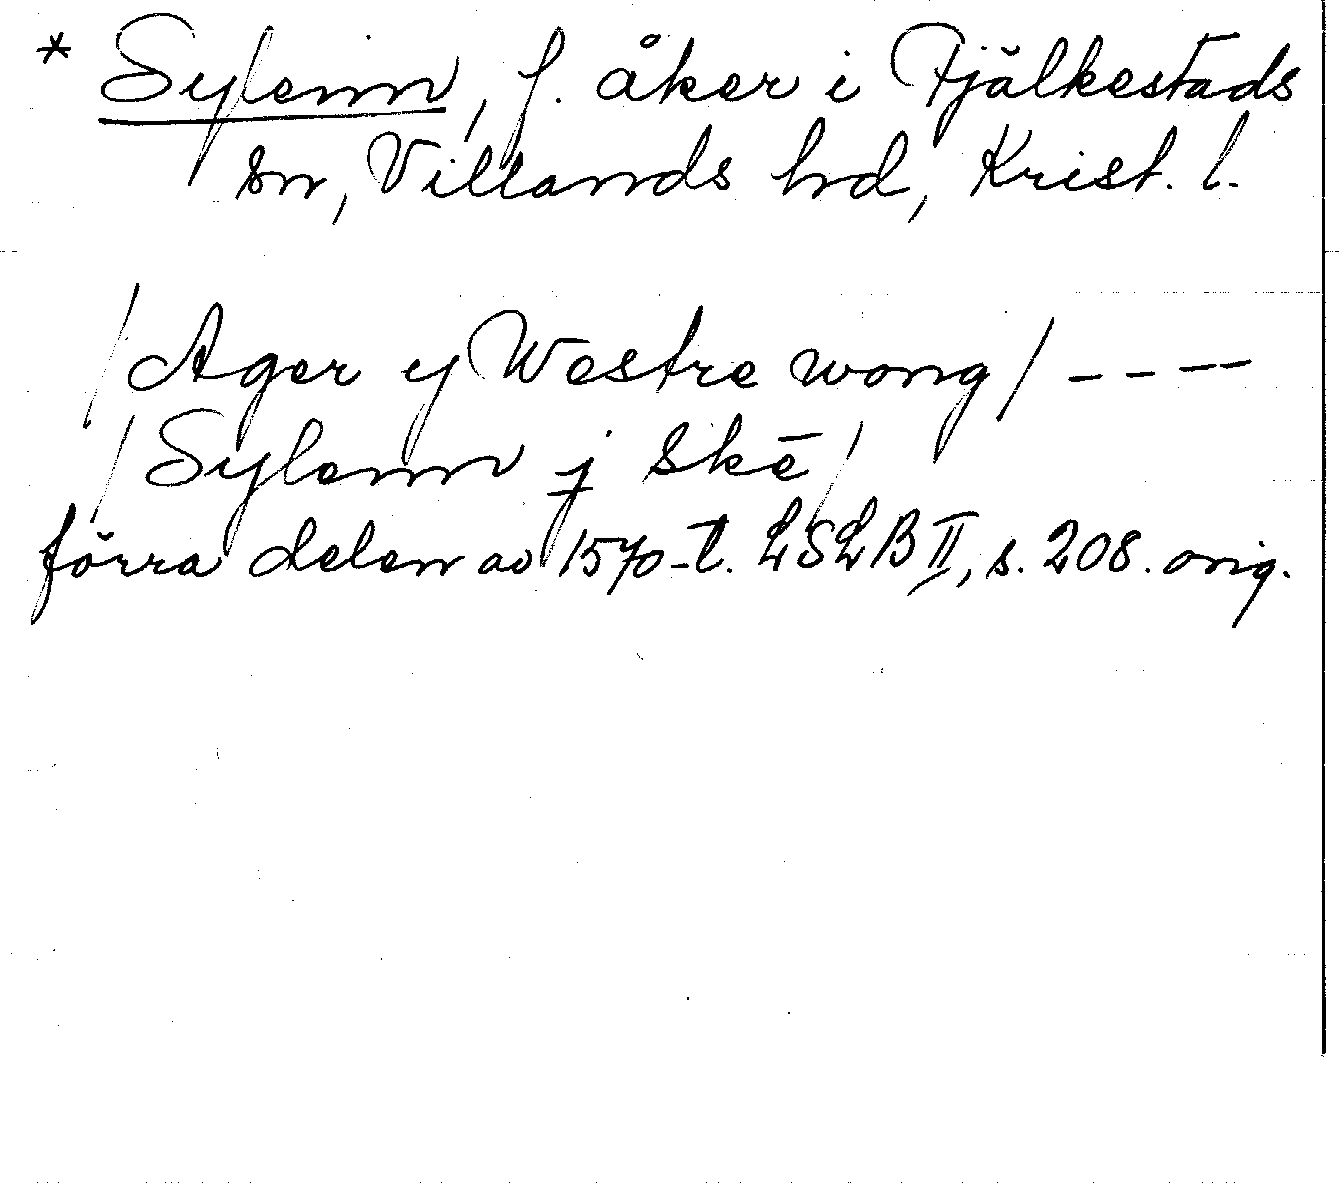 * Sylenn, f. åker i Fjälkestads
sn, Villands hd, Krist. l.
/Ager y Westre wong/ ----
/Sylenn j Skē/
förra delen av 1570-t. LSLB II, s. 208. orig.